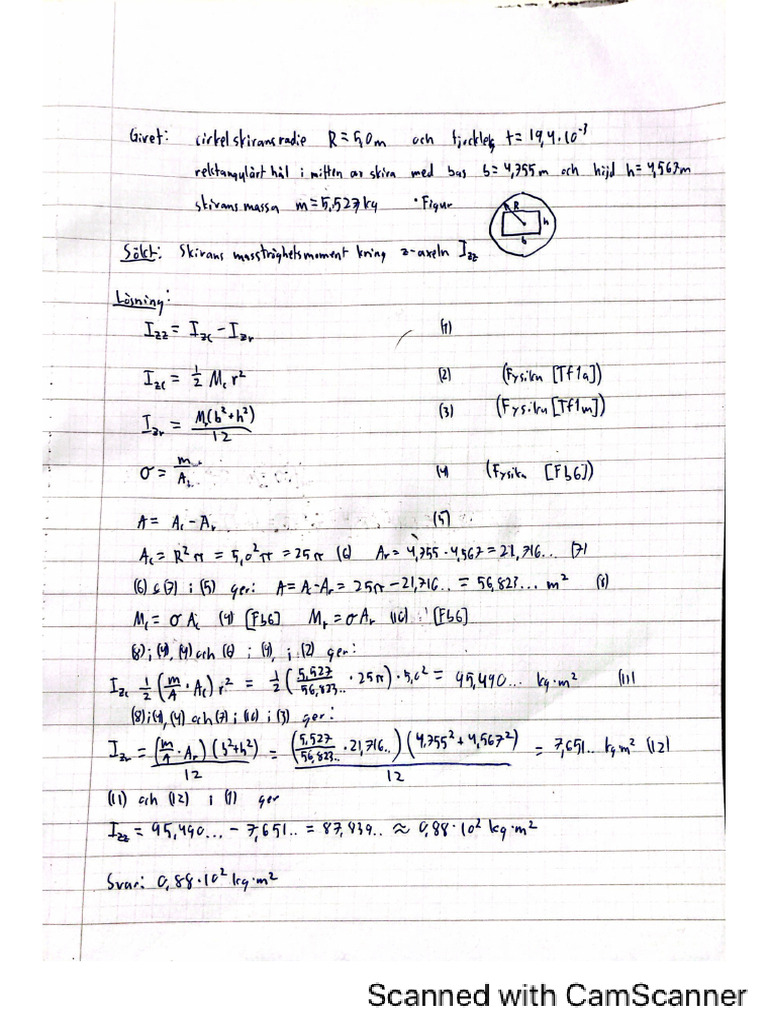 Givet: cirkelskivans radie R = 5,0 m och tjocklek t = 19,4·10⁻³
rektangulärt hål i mitten av skiva med bas b = 4,755 m och höjd h = 4,567 m
skivans massa m = 5,527 kg • Figur
R h b
Sökt: Skivans masströghetsmoment kring z-axeln I_zz
Lösning:
I_zz = I_zc - I_zr (1)
I_zc = 1/2 M_c r² (2) (Fysika [Tf1a])
I_zr = M_r(b²+h²)/12 (3) (Fysika [Tf1m])
σ = m/A (4) (Fysika [Fb6])
A = A_c - A_r (5)
A_c = R²π = 5,0²π = 25π (6) A_r = 4,755·4,567 = 21,716... (7)
(6) & (7) i (5) ger: A = A_c-A_r = 25π - 21,716.. = 56,823... m² (8)
M_c = σ A_c (9) [Fb6] M_r = σ A_r (10) [Fb6]
(8) i (4), (4) och (6) i (9), i (2) ger:
I_zc 1/2 (m/A · A_c) r² = 1/2 (5,527/56,823.. · 25π) · 5,0² = 95,490... kg·m² (11)
(8) i (4), (4) och (7) i (10) i (3) ger:
I_zr = (m/A · A_r)(b²+h²)/12 = (5,527/56,823.. · 21,716..)(4,755²+4,567²)/12 = 7,651.. kg m² (12)
(11) och (12) i (1) ger
I_zz = 95,490... - 7,651.. = 87,839.. ≈ 0,88·10² kg·m²
Svar: 0,88·10² kg·m²
Scanned with CamScanner